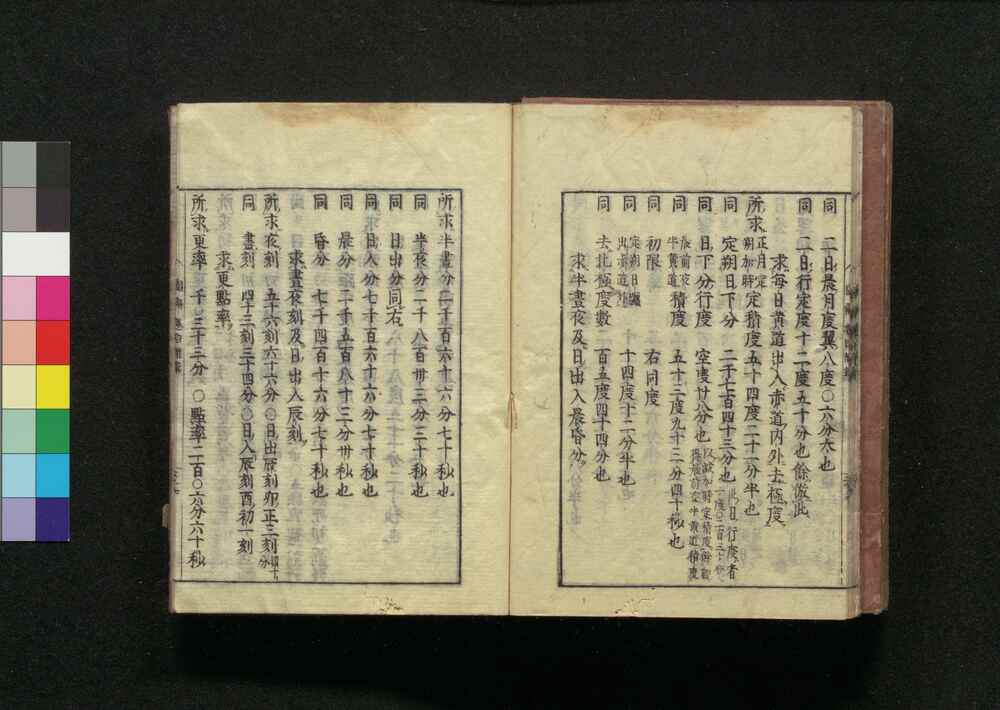 同 二日晨月度翼八度〇六分太也
同 二日行定度十二度五十分也餘倣此
求毎日黄道出入赤道内外去極度
所求正月定朔加時定積度五十四度二十一分半也
同 定朔日下分 二千七百四十三分也
同 日下分行度 空度廿八分也
同 晨前夜半黄道積度 五十三度九十三分四十秒也
同 初限 右同度
同 定朔日 出赤道 十四度十二分半也
同 去北極度數 百五度四十四分也
求半晝夜及日出入晨昏分
所求半晝分二千百六十六分七十秒也
同 半夜分二千八百卅三分三十秒也
同 日出分同右
同 日入分七千百六十六分七十秒也
同 晨分二千五百八十三分卅秒也
同 昏分 七千四百十六分七十秒也
求晝夜刻及日出入辰刻
所求夜刻 五十六刻六十六分〇日出辰刻卯正三刻
同 晝刻 四十三刻三十四分〇日入辰刻酉初一刻
求更點率
所求更率 千三十三分〇點率二百〇六分六十秒